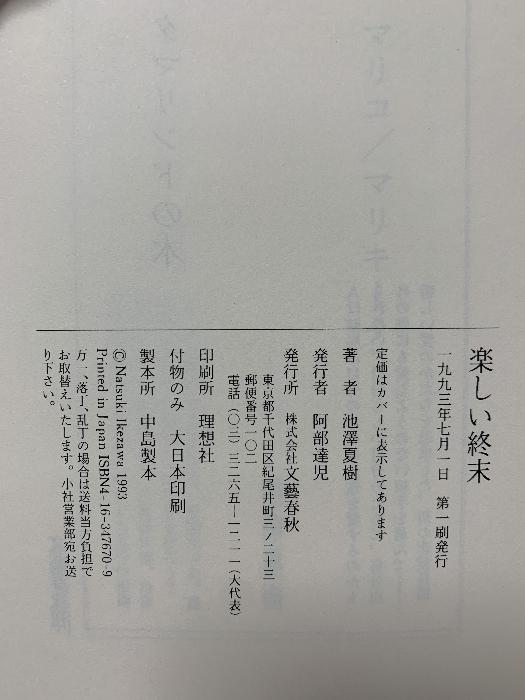 マリコ／マリキ
タマリンドの木
楽しい終末
一九九三年七月一日　第一刷発行
定価はカバーに表示してあります
著　者　池澤夏樹
発行者　阿部達児
発行所　株式会社文藝春秋
東京都千代田区紀尾井町三ノ二十三
郵便番号一〇二
電話（〇三）三二六五―一二一一（大代表）
印刷所　理想社
付物のみ　大日本印刷
製本所　中島製本
© Natsuki Ikezawa 1993
Printed in Japan ISBN4-16-347670-9
万一、落丁、乱丁の場合は送料当方負担で
お取替えいたします。小社営業部宛お送
り下さい。